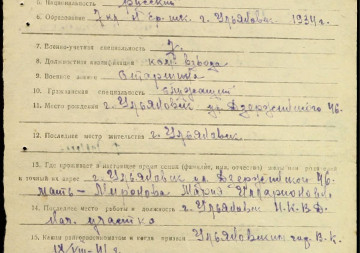 5. Национальность Русский
6. Образование 7 кл. г. Ульяновск 1934 г.
7. Военно-учетная специальность
8. Должностная квалификация ком. взвода
9. Военное звание Старшина
10. Гражданская специальность
11. Место рождения г. Ульяновск ул. Дзержинского 46.
12. Последнее место жительства г. Ульяновск.
13. Где проживает в настоящее время семья (фамилия, имя, отчество)
и точный их адрес г. Ульяновск ул. Дзержинского 46
мать - Мария Илларионовна
14. Последнее место работы и должность г. Ульяновск Н.К.В.Д.
нач. участка
15. Каким райгорвоенкоматом и когда призван Ульяновским гор. В.К.